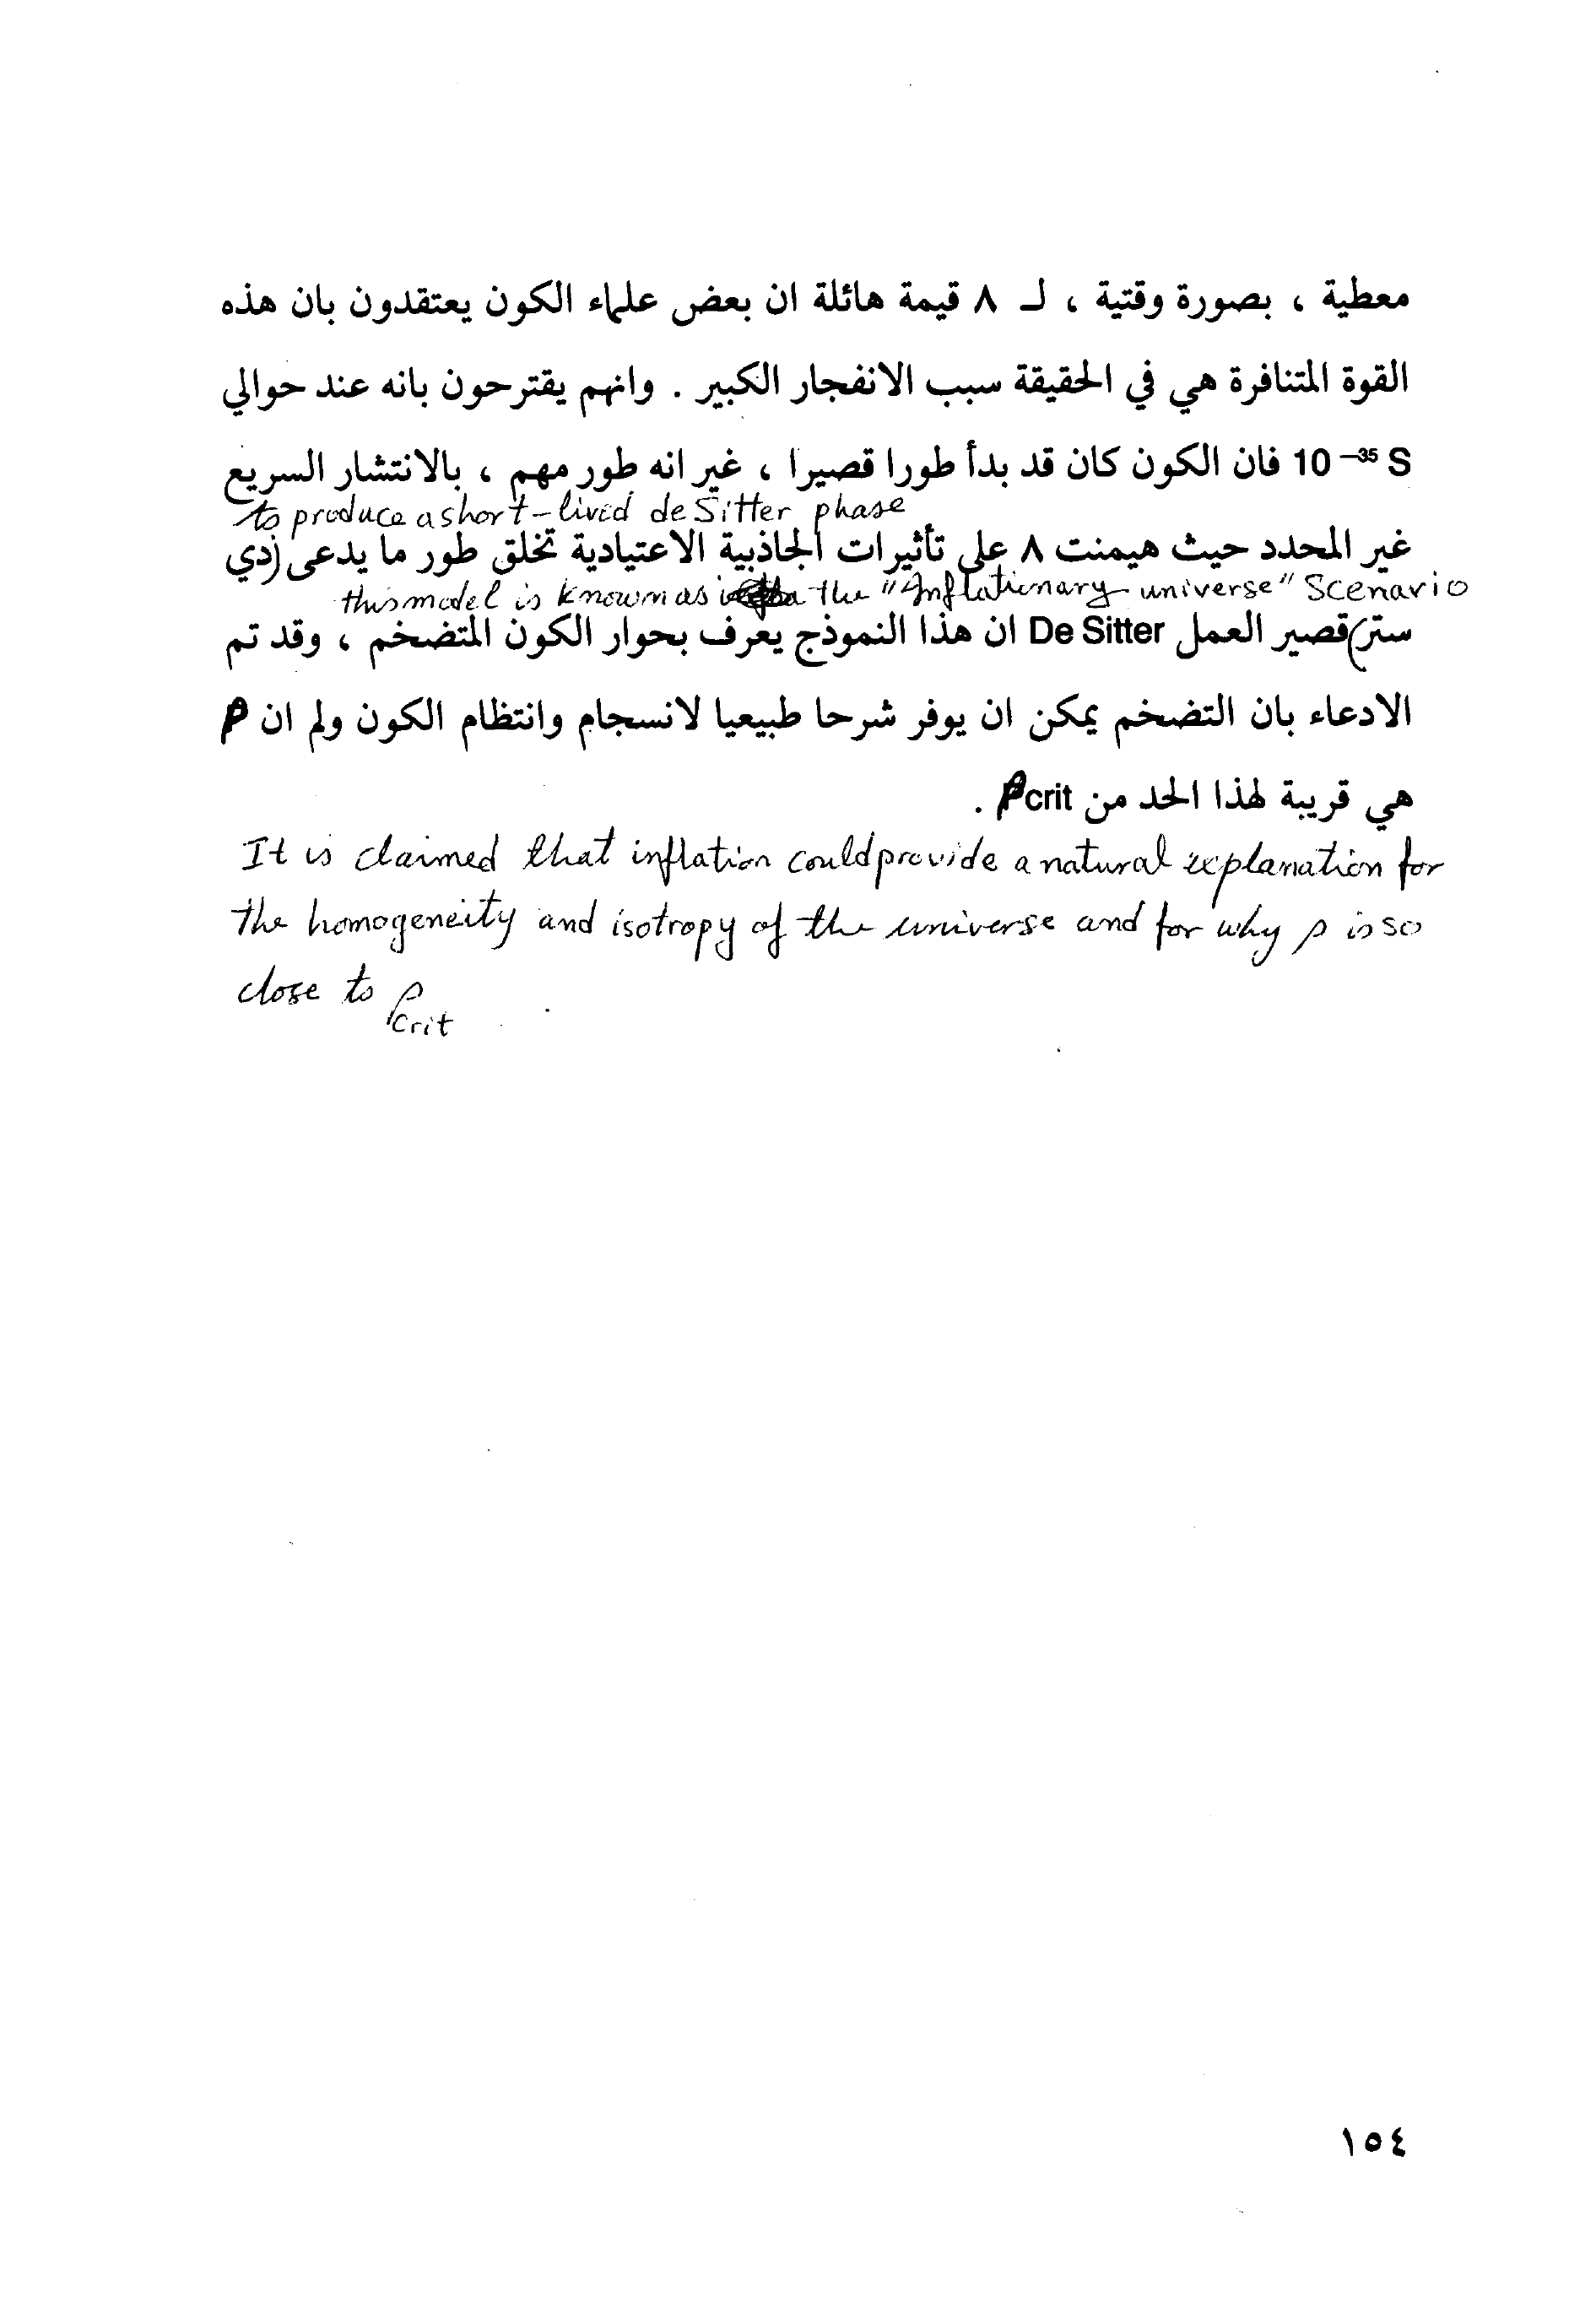 معطية ، بصورة وقتية ، لـ ٨ قيمة هائلة ان بعض علماء الكون يعتقدون بان هذه
القوة المتنافرة هي في الحقيقة سبب الانفجار الكبير . وانهم يقترحون بانه عند حوالي
10⁻³⁵ S فان الكون كان قد بدأ طورا قصيرا ، غير انه طور مهم ، بالانتشار السريع
to produce a short-lived de Sitter phase
غير المحدد حيث هيمنت ٨ على تأثيرات الجاذبية الاعتيادية تخلق طور ما يدعى (دي
this model is known as the "Inflationary universe" Scenario
ستر) قصير العمل De Sitter ان هذا النموذج يعرف بحوار الكون المتضخم ، وقد تم
الادعاء بان التضخم يمكن ان يوفر شرحا طبيعيا لانسجام وانتظام الكون ولم ان ρ
هي قريبة لهذا الحد من ρcrit .
It is claimed that inflation could provide a natural explanation for
the homogeneity and isotropy of the universe and for why ρ is so
close to ρcrit
١٥٤